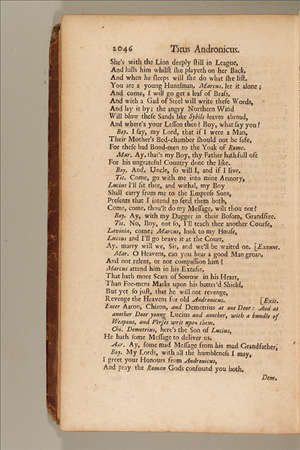 2046 Titus Andronicus.
She's with the Lion deeply still in League,
And lulls him whilst she playeth on her Back.
And when he sleeps will she do what she list.
You are a young Huntsman, Marcus, let it alone;
And come, I will go get a leaf of Brass,
And with a Gad of Steel will write these Words,
And lay it by; the angry Northern Wind
Will blow these Sands like Sybils leaves abroad,
And where's your Lesson then? Boy, what say you?
Boy. I say, my Lord, that if I were a Man,
Their Mother's Bed-chamber should not be safe,
For these bad Bond-men to the Yoak of Rome.
Mar. Ay, that's my Boy, thy Father hath full oft
For his ungrateful Country done the like.
Boy. And, Uncle, so will I, and if I live.
Tit. Come, go with me into mine Armory,
Lucius I'll fit thee, and withal, my Boy
Shall carry from me to the Empress Sons,
Presents that I intend to send them both,
Come, come, thou'lt do my Message, wilt thou not?
Boy. Ay, with my Dagger in their Bosom, Grandsire.
Tit. No, Boy, not so, I'll teach thee another Course,
Lavinia, come; Marcus, look to my House,
Lucius and I'll go brave it at the Court,
Ay, marry will we, Sir, and we'll be waited on. [Exeunt.
Mar. O Heavens, can you hear a good Man groan,
And not relent, or not compassion him?
Marcus attend him in his Extasie,
That hath more Scars of Sorrow in his Heart,
Than Foe-mens Marks upon his batter'd Shield,
But yet so just, that he will not revenge,
Revenge the Heavens for old Andronicus. [Exit.
Enter Aaron, Chiron, and Demetrius at one Door: And at
another Door young Lucius and another, with a bundle of
Weapons, and Verses writ upon them.
Chi. Demetrius, here's the Son of Lucius,
He hath some Message to deliver us.
Aar. Ay, some mad Message from his mad Grandfather,
Boy. My Lords, with all the humbleness I may,
I greet your Honours from Andronicus,
And pray the Roman Gods confound you both.
Dem.